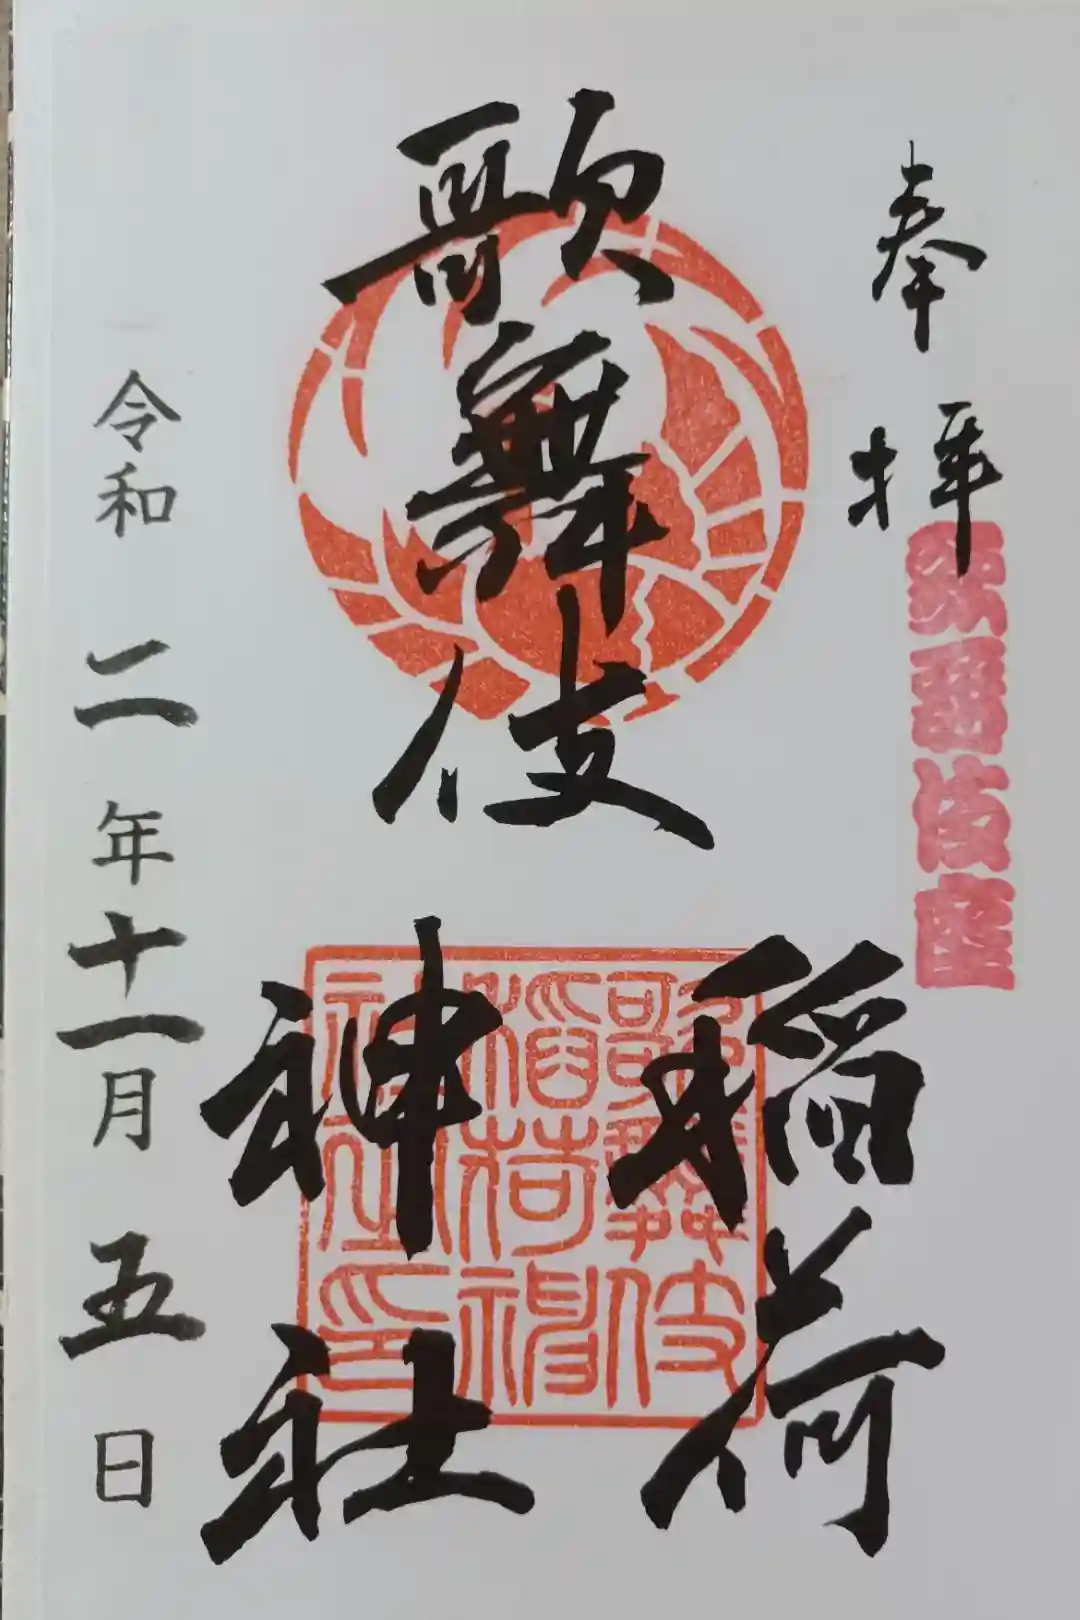 奉拝
歌舞伎座
歌舞伎
稲荷
神社
歌舞伎
稲荷神
社之印
令和二年十一月五日